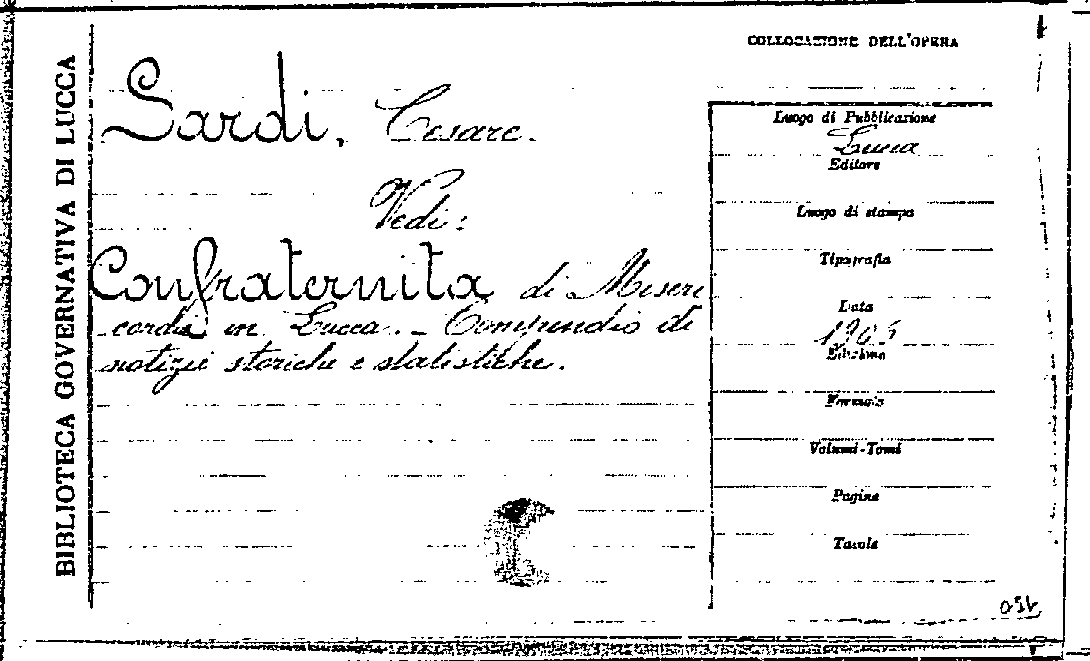 BIBLIOTECA GOVERNATIVA DI LUCCA
COLLOCAZIONE DELL'OPERA
Sardi, Cesare.
Vedi:
Confraternita di Miseri
cordia in Lucca. - Compendio di
notizie storiche e statistiche.
Luogo di Pubblicazione
Lucca
Editore
Luogo di stampa
Tipografia
Data
Edizione
Formato
Volumi-Tomi
Pagine
Tavole